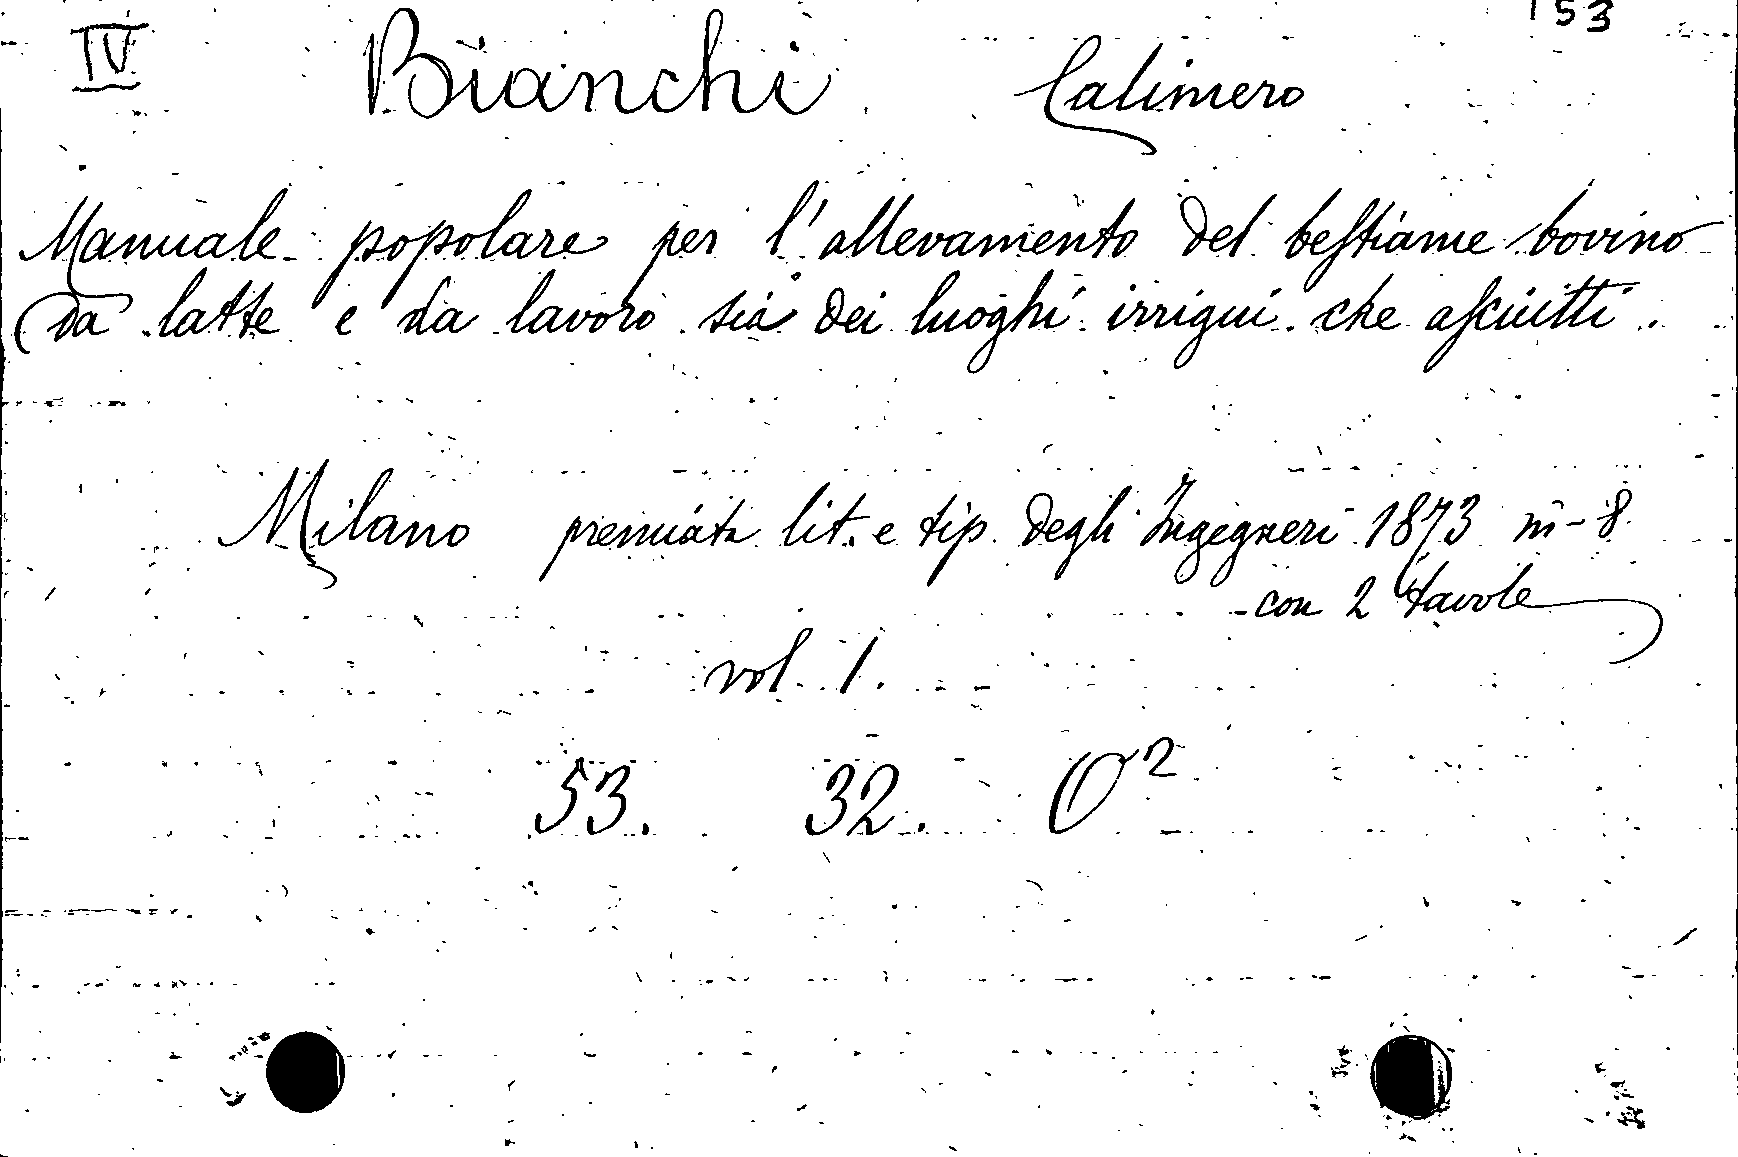 IV Bianchi Calimero 153
Manuale popolare per l'allevamento del bestiame bovino
da latte e da lavoro sia dei luoghi irrigui che asciutti.
Milano premiata lit. e tip. degli Ingegneri 1873 in-8.
con 2 tavole
vol. 1.
53. 32. O²